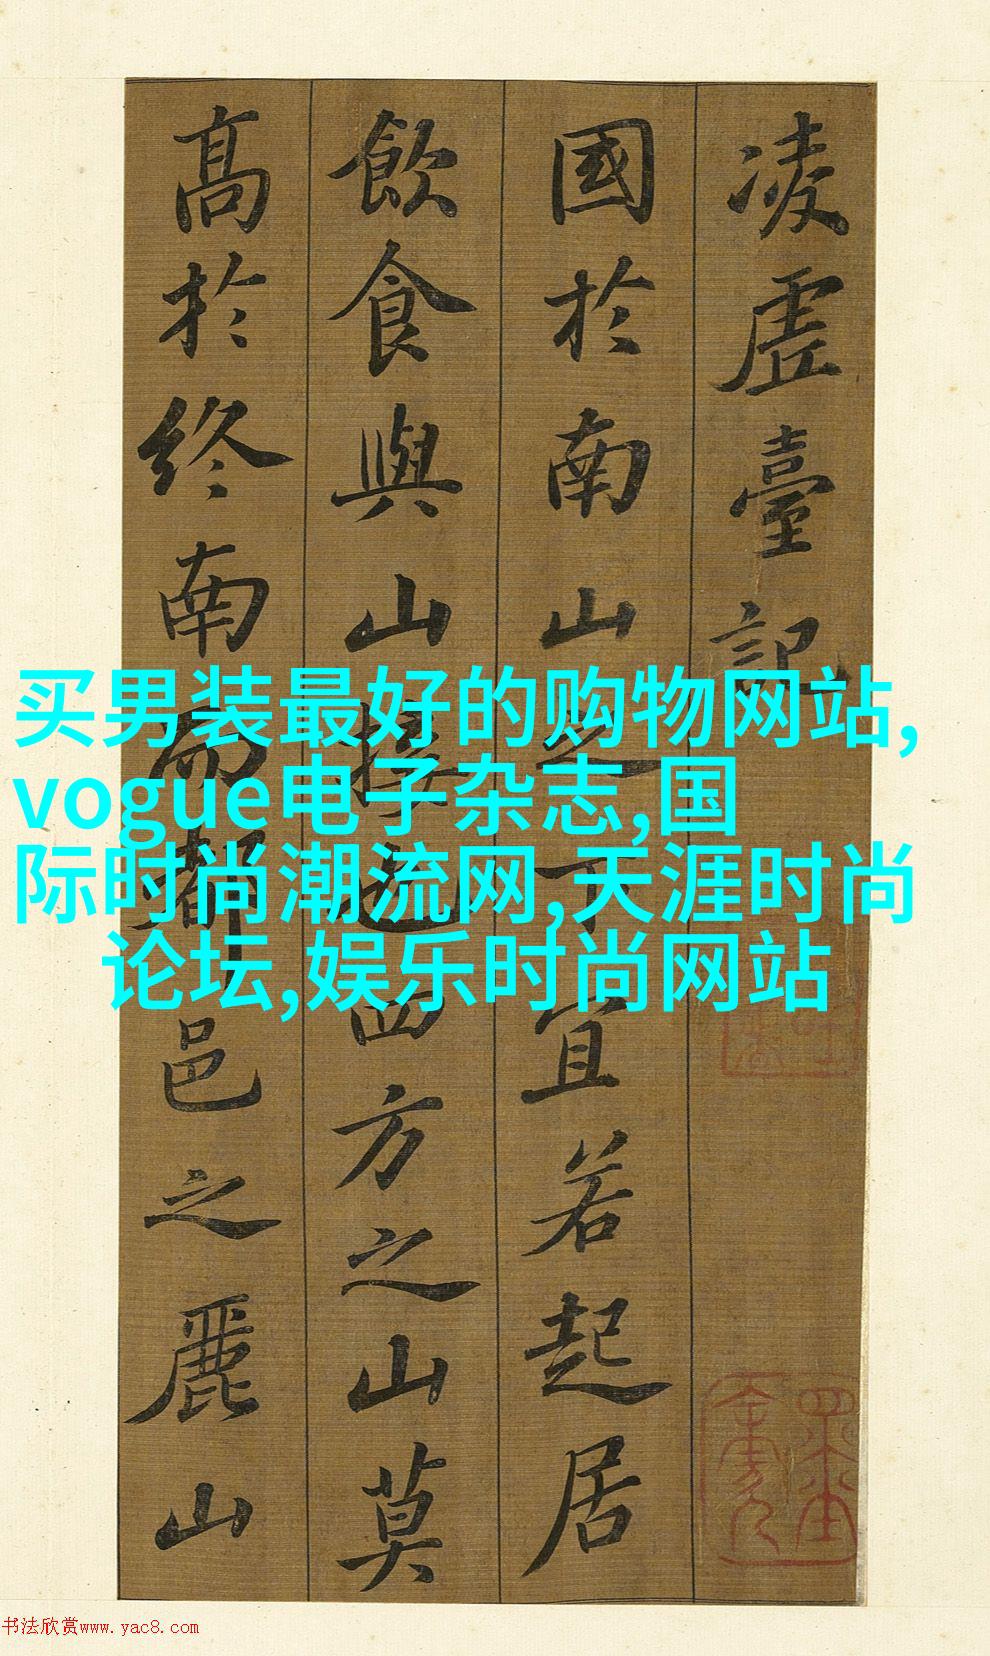 凌虛臺記
國於南山之下宜若起居
飲食與山接也四方之山莫
高於終南而都邑之麗山
买男装最好的购物网站,
vogue电子杂志,国
际时尚潮流网,天涯时尚
论坛,娱乐时尚网站
书法欣赏www.yac8.com